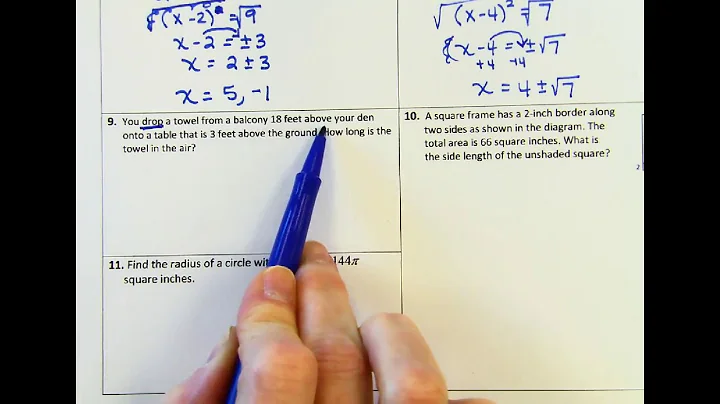 (x-2)² = √9
x-2 = ±3
x = 2±3
x = 5, -1
√(x-4)² = √7
x-4 = ±√7
+4 +4
x = 4±√7
9. You drop a towel from a balcony 18 feet above your den
onto a table that is 3 feet above the ground. How long is the
towel in the air?
10. A square frame has a 2-inch border along
two sides as shown in the diagram. The
total area is 66 square inches. What is
the side length of the unshaded square?
2
11. Find the radius of a circle 144π
square inches.